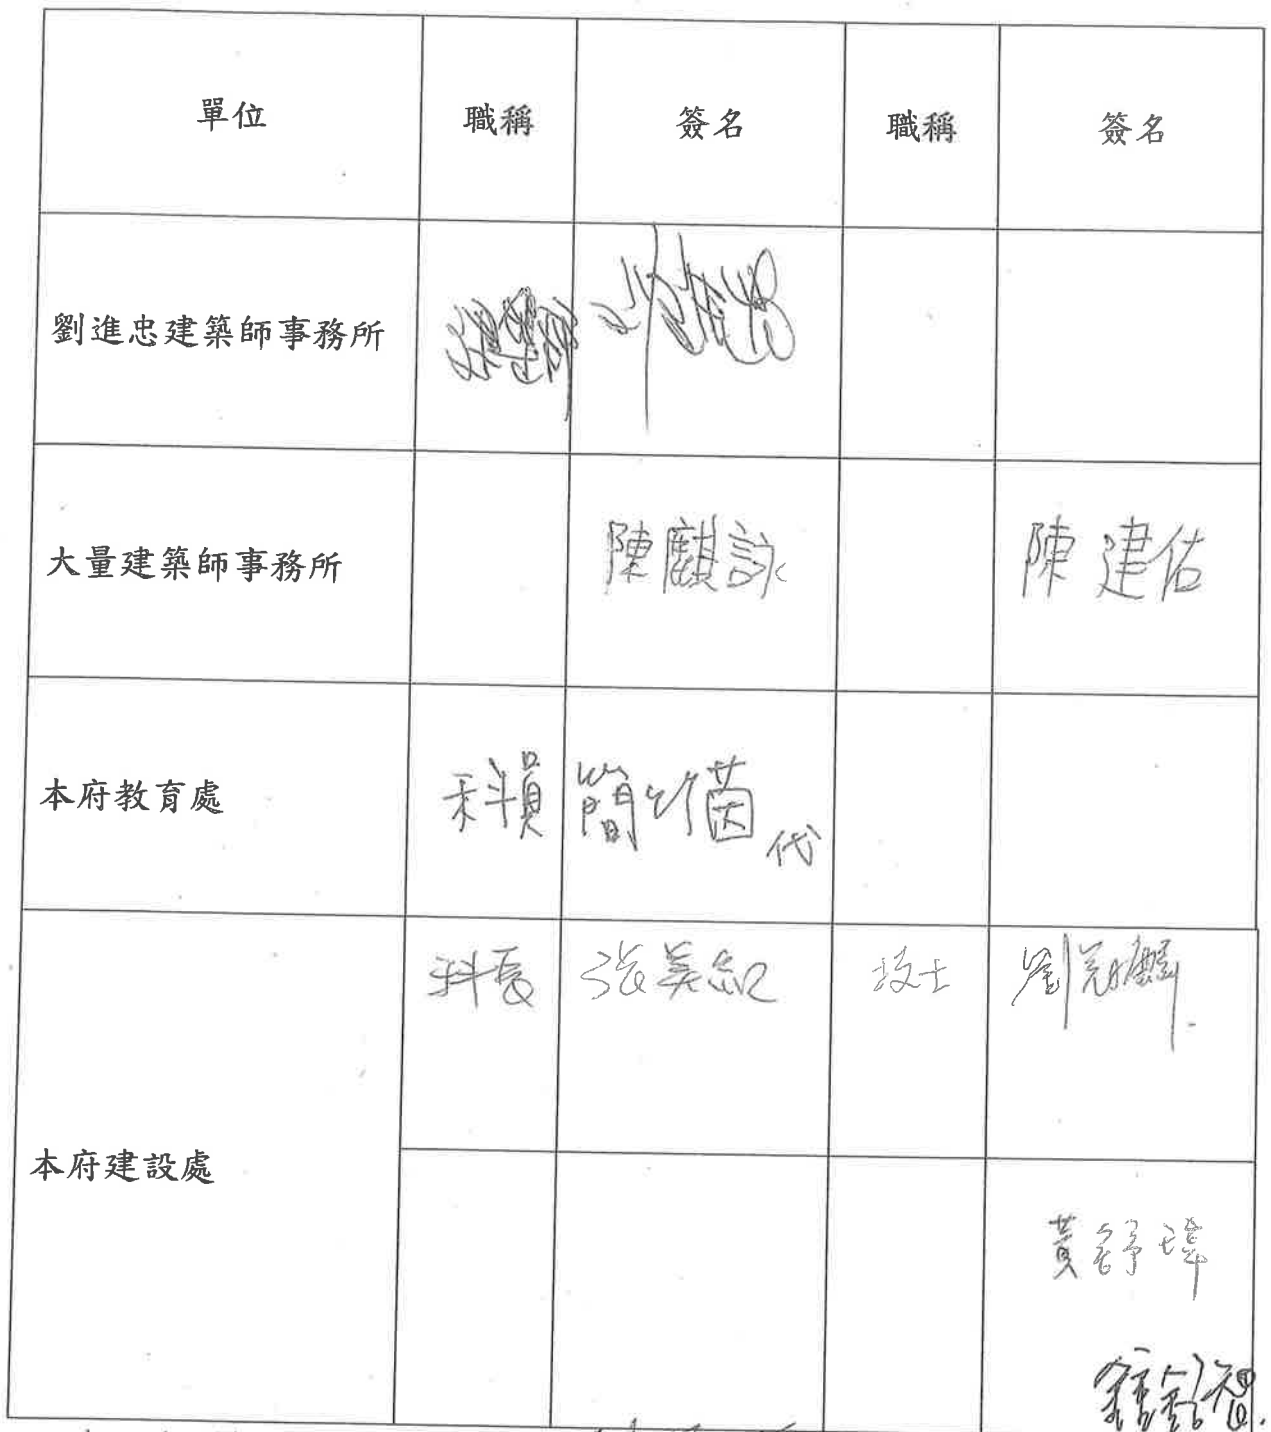 單位 職稱 簽名 職稱 簽名
劉進忠建築師事務所
大量建築師事務所 陳麒詠 陳建佑
本府教育處 科員 簡 茵 代
科長 張美 技士 劉冠麟
本府建設處
黃舒瑋